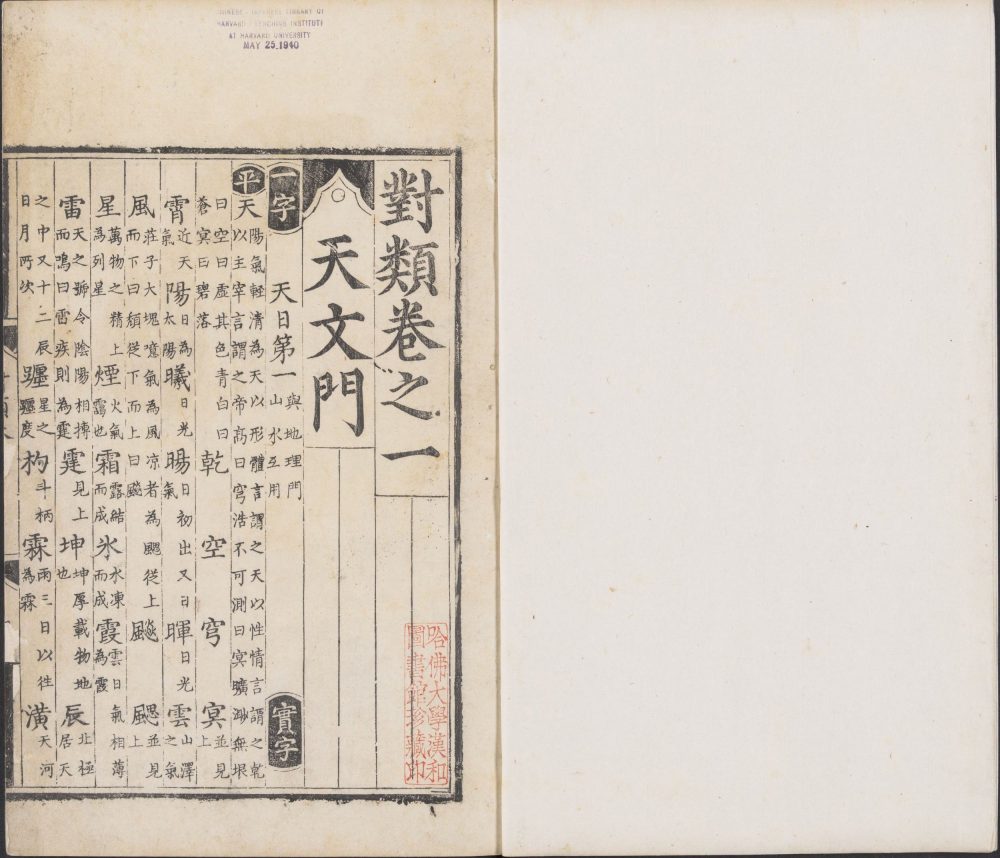 CHINESE - JAPANESE LIBRARY OF
HARVARD - YENCHING INSTITUTE
AT HARVARD UNIVERSITY
MAY 25, 1940
對類卷之一
天文門
一字 天日第一 與地理門山水互用 實字
平 天 陽氣輕清為天以形體言謂之天以性情言謂之乾以主宰言謂之帝高曰穹浩不可測曰冥曠渺無垠
曰空曰虛其色青白曰蒼冥曰碧落 乾 空 穹 冥 並見上
霄 近天氣 陽 日為太陽 曦 日光 暘 日初出又日氣 暉 日光 雲 山澤之氣
風 莊子大塊噫氣為風凉者為颸從上而下曰頹從下而上曰飈 飈 颸 並見上
星 萬物之精上為列星 煙 火氣靄也 霜 露結而成 氷 水凍而成 霞 雲日氣相薄為霞
雷 天之號令陰陽相摶而鳴曰雷疾則為霆 霆 見上 坤 坤厚載物地也 辰 北極居天
之中又十二辰日月所次 躔 星之躔度 杓 斗柄 霖 雨三日以往為霖 潢 天河
哈佛大學漢和
圖書館珍藏印